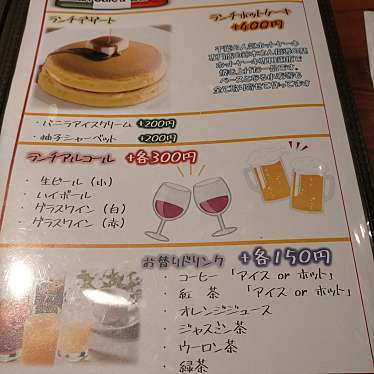 ランチデザート
ランチホットケーキ
+400円
・バニラアイスクリーム +200円
・柚子シャーベット +200円
ランチアルコール +各300円
・生ビール（小）
・ハイボール
・グラスワイン（白）
・グラスワイン（赤）
お替りドリンク +各150円
・コーヒー 「アイス or ホット」
・紅 茶 「アイス or ホット」
・オレンジジュース
・ジャスミン茶
・ウーロン茶
・緑茶